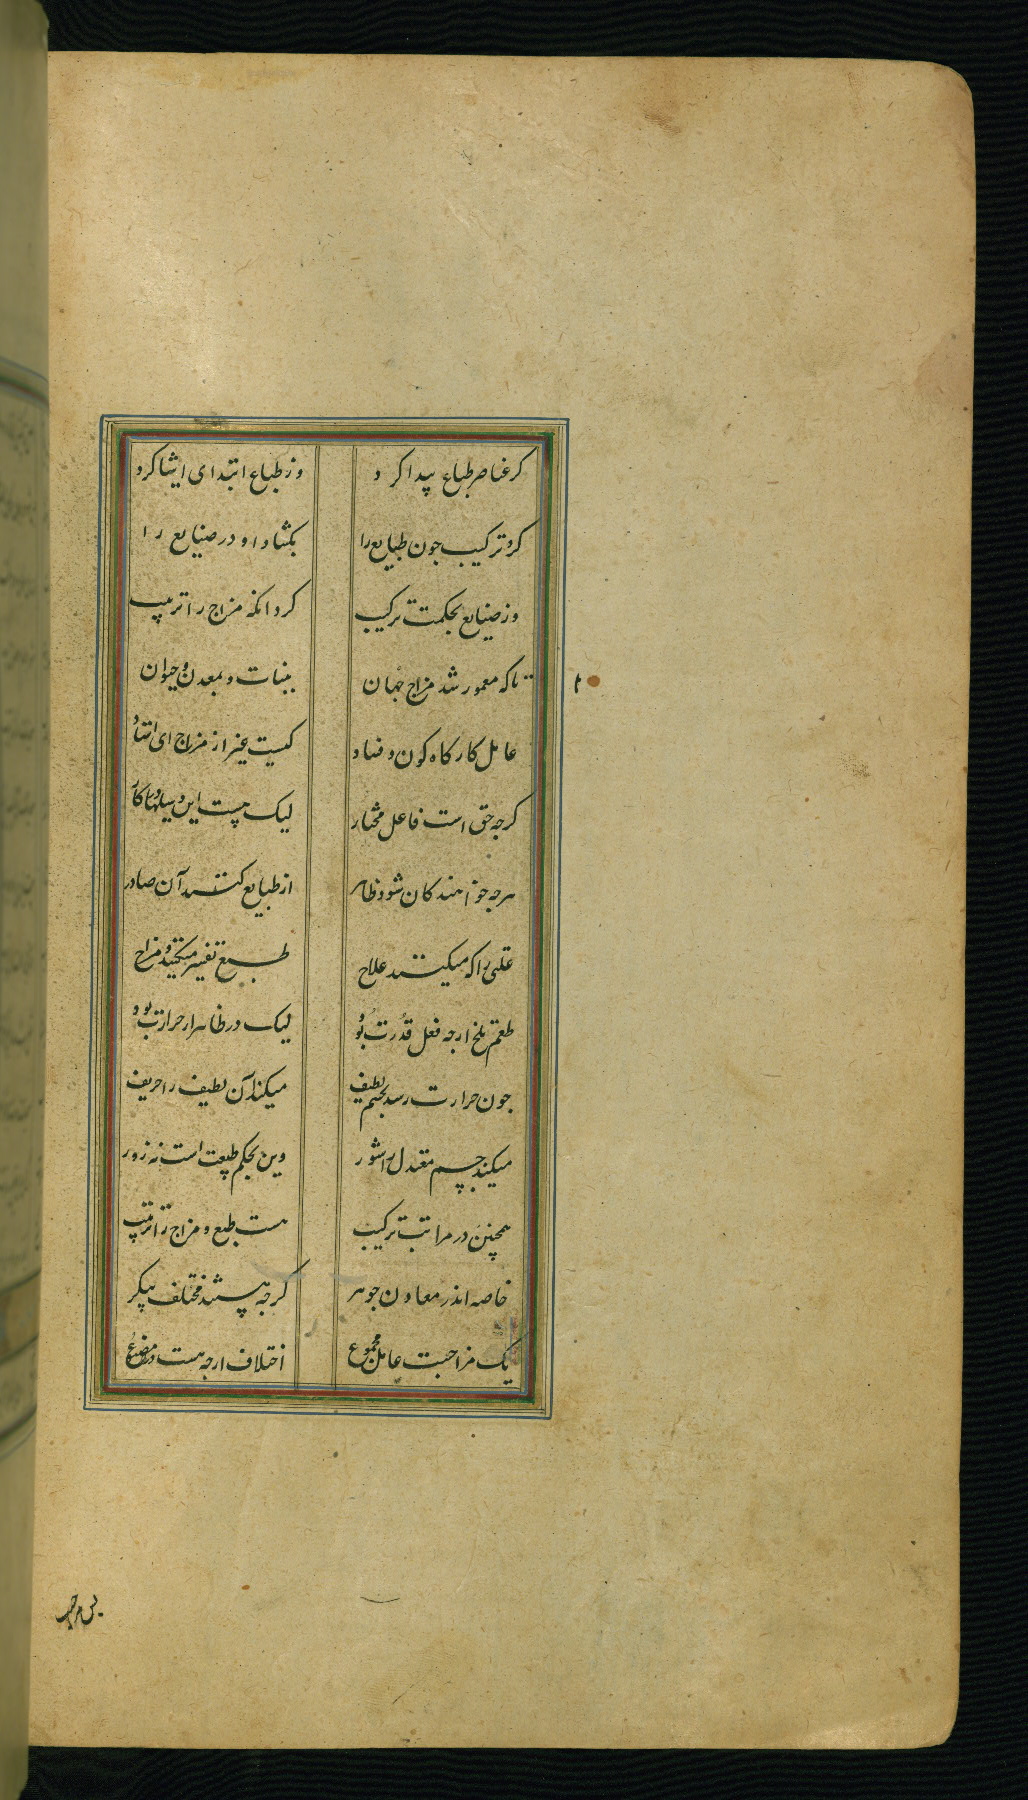 کز عناصر طبایع پیدا کرد وز طبایع ابتدای اشیا کرد
کرد ترکیب چون طبایع را بکشاد او در صنایع را
وز صنایع بحکمت ترکیب کرد آنکه مزاج را ترتیب
تا که معمور شد مزاج جهان بنبات و بمعدن و حیوان
عامل کارکاه کون و فساد کیست غیر از مزاج ای استاد
کرچه حق است فاعل مختار لیک هست این وسیلها با کار
هرچه خواهند کان شود ظاهر از طبایع کنند آن صادر
را که میکنند علاج طبع تفسیر میکنند و مزاج
طعم تلخ ارچه فعل قدرت بود لیک در ظاهر از حرارت بود
چون حرارت رسد بجسم لطیف میکند آن لطیف را حریف
میکند جسم معتدل را شور وین بحکم طبیعت است نه زور
همچنین در مراتب ترکیب هست طبع و مزاج را ترتیب
خاصه اندر معادن جوهر کرچه هستند مختلف پیکر
یک مزاجست عامل مجموع اختلاف ارچه هست در